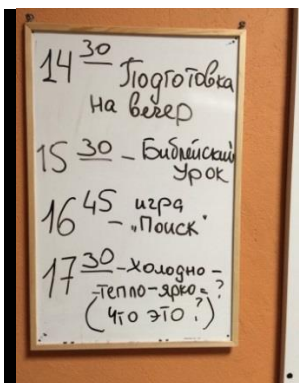 14 30 Подготовка
на вечер
15 30 – Библейский
Урок
16 45 игра
– „Поиск"
17 30 – Холодно –
– тепло – ярко = ?
( Что это ? )